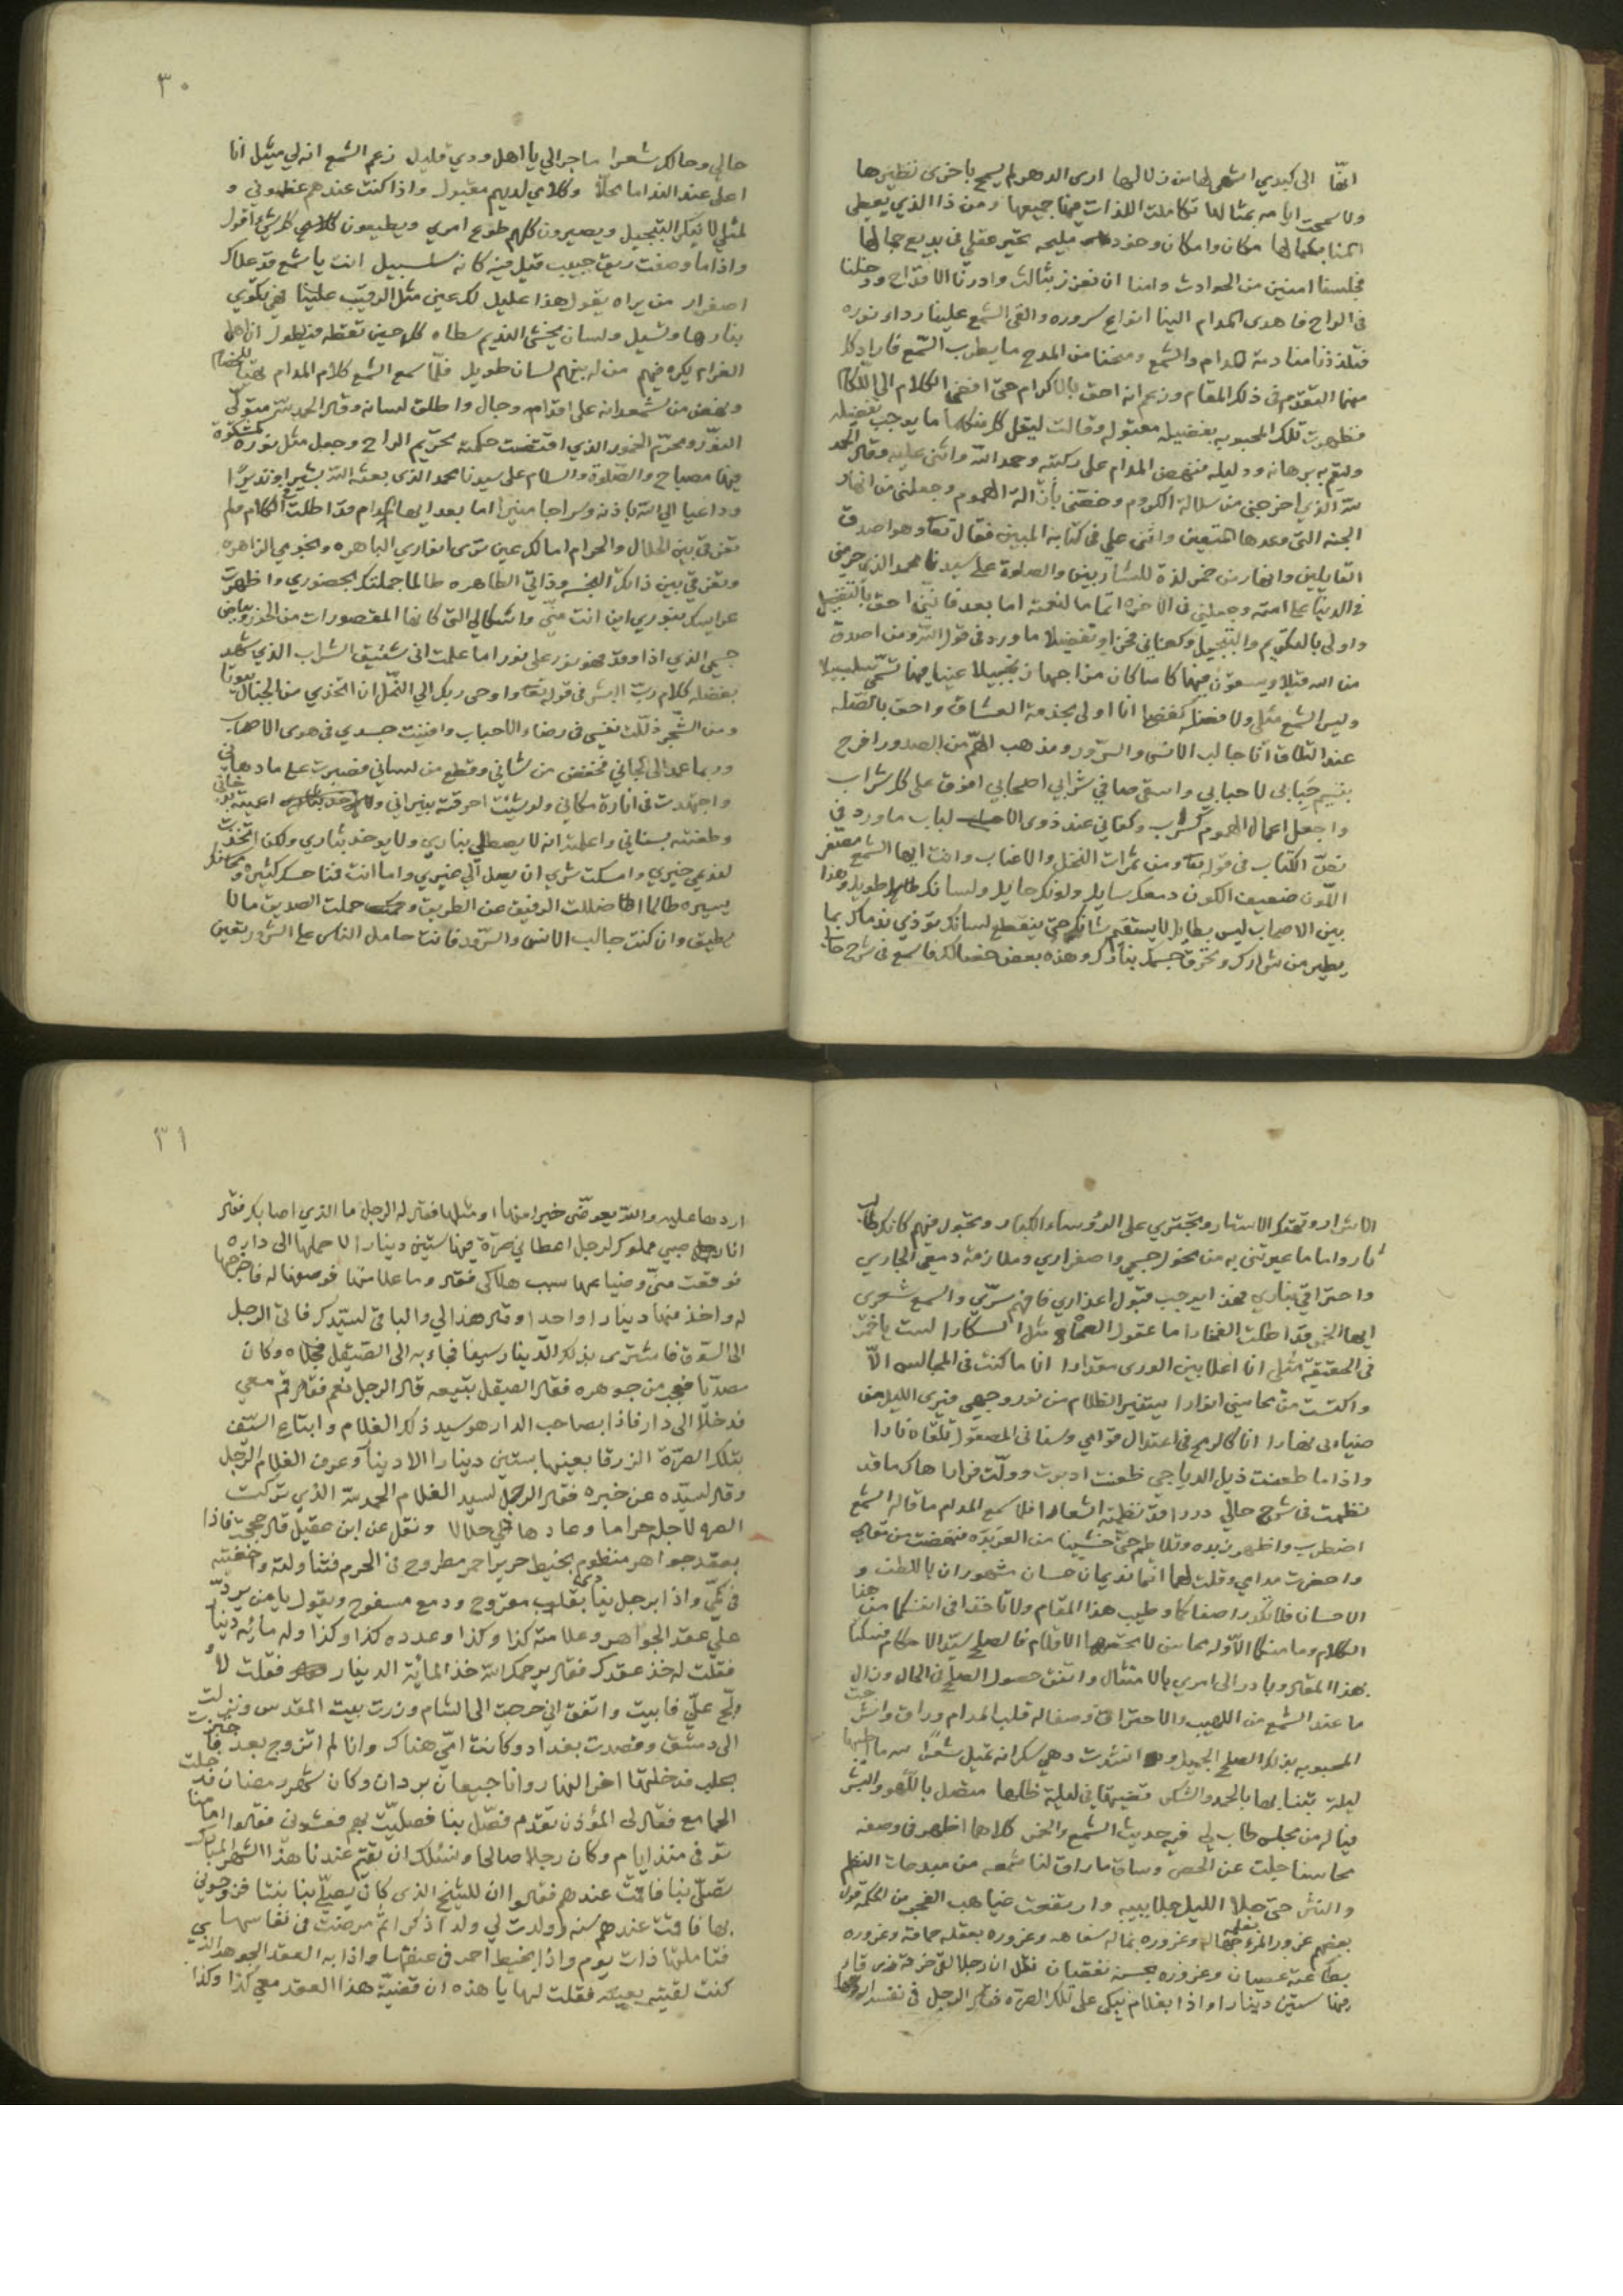 انها الى كبدي اشهى لها من زلالها ارى الدهر لم يسمح باخرى نظيرها
ولا سمحت ايامه بمثالها تكاملت اللذات فيها جميعها ومن ذا الذي يعطى
المنا بكمالها مكان وامكان وخود مليحه تحير عقلي في بديع جمالها
مجلسنا امنين من الحوادث وامنا ان نعزز بثالث وادرنا الاقداح ودخلنا
في الراح فاهدى المدام الينا انواع سروره والقى الشمع علينا رداء نوره
فتلذذنا منادمة المدام والشمع ومنحنا من المدح ما يطرب السمع فاراد كل
منهما التقدم في ذلك المقام وزعم انه احق بالاكرام حتى افضى الكلام الى اللكام
فظهرت تلك المحبوبه بفضيله مقبوله وقالت ليقل كل منكما ما يوجب تفضيله
وليقم برهانه ودليله فنهض المدام على ركبته وحمد الله واثنى عليه وقال الحمد
لله الذي اخرجني من سلالة الكروم وخصني بازالة الهموم وجعلني من انهار
الجنه التي وعدها المتقين واثنى علي في كتابه المبين فقال تعالى وهو اصدق
القايلين وانهار من خمر لذة للشاربين والصلوة على سيدنا محمد الذي حرمني
في الدنيا على امته وجعلني في الاخره اتماما لنعمته اما بعد فانني احق بالتفضيل
واولى بالتكريم والتبجيل وكفاني فخرا وتفضيلا ما ورد في قول الله ومن اصدق
من الله قيلا ويسقون فيها كاسا كان مزاجها زنجبيلا عينا فيها تسمى سلسبيلا
وليس الشمع مثلي ولا فضله كفضلي انا اولى بخدمة العشاق واحق بالصله
عند التلاق انا جالب الانس والسرور ومذهب الهم من الصدور افرح
بنسيم حبابي لاحبابي واستى صافي شرابي اصحابي افوق على كل شراب
واجعل اعمال الهموم كسراب وكفاني عند ذوى الالباب ما ورد في
نص الكتاب في قوله تعالى ومن ثمرات النخل والاعناب وانت ايها الشمع مصفر
اللون ضعيف الكون دمعك سايل ولونك حايل ولسانك طويل وهذا
بين الاصحاب ليس بطايل لا يستقيم شانك حتى ينقطع لسانك تؤذي ندماك بما
يطير من شرارك وتحرق جسمك بنارك وهذه بعض خصالك فاسمع في شرح حالي
٣٠
حالي وحالك شعرا ما جرا لي يا اهل ودي قليل زعم الشمع انه لي مثيل انا
اعلى عند الندا ما محلا وكلامي لديهم مقبول واذا كنت عندهم عظموني و
لمثلي لا ينكر التبجيل ويصيرون كلهم طوع امري ويطيعون كلامي كل شئ اقول
واذا ما وصفت ريق حبيب قيل فيه كانه سلسبيل انت يا شمع قد علاك
اصفرار من يراه يقول هذا عليل لك عين مثل الرقيب علينا فهي تكوي
بنارها وتسيل ولسان يخشى النديم سطاه كل حين تقطه فيطول ان اهل
الغرام يكره فيهم من له بينهم لسان طويل فلما سمع الشمع كلام المدام تهيا للخصام
ونهض من شمعدانه على اقدام وجال واطلق لسانه وقال الحمد لله متولى
النور ومحرم الخمور الذي اقتضت حكمته تحريم الراح وجعل مثل نوره كمشكوة
فيها مصباح والصلوة والسلام على سيدنا محمد الذي بعثه الله بشيرا ونذيرا
وداعيا الى الله باذنه وسراجا منيرا اما بعد ايها المدام قد اطلت الكلام ولم
تفرق بين الحلال والحرام اما لك عين ترى انواري الباهره ونجومي الزاهره
وتفرق بين ذاتك النجسه وذاتي الطاهره طالما جملتك بحضوري واظهرت
عرايسك بنوري اين انت مني واشكالي التي كانها المقصورات من الحور وبياض
جسمي الذي اذا وقد فهو نور على نور اما علمت اني شقيق الشراب الذي شهد
بفضله كلام رب البشر في قوله تعالى واوحى ربك الى النحل ان اتخذي من الجبال بيوتا
ومن الشجر ذللت نفسي في رضاء الاحباب وافنيت جسدي في هوى الاصحاب
وربما عمد الى الجاني فخفض من شاني وقطع من لساني فصبرت على ما دهاني
واجتهدت في انارة مكاني ولو شئت احرقته بنيراني
وطعنته بسناني واعلمته انه لا يصطلي بناري ولا يوخذ بثاري ولكن اتخذت
لقومي خيري وامسكت شري ان يصل الى غيري واما انت فمفاسدك كثيره ومحاسنك
يسيره طالما اضللت الرفيق عن الطريق وحملت الصديق ما لا
يطيق وان كنت جالب الانس والسرور فانت حامل الناس على الشر ويقين
الاشرار وتهتك الاستار وتجتري على الرؤساء الكبار وتجول فيهم كانك طالب
ثار واما ما عيرتني به من نحول جسمي واصفراري وملازمة دمعي الجاري
واحتراقي بناري فهذا يوجب قبول اعذاري فافهم سرّي واسمع شعري
ايها الخمر قد اطلت الفخارا ما عقول الصحاة مثل السكارا لست يا خمر
في الحقيقة مثلي انا اعلا بين الورى مقدارا انا ما كنت في المجالس الا
واكتست من محاسني انوارا يستنير الظلام من نور وجهي فيرى الليل من
ضيائي نهارا انا كالرمح في اعتدال قوامي وسناني المصقول تلقاه نارا
واذا ما طعنت ذيل الدياجي ظعنت ادبرت وولت فرارا هاك ما قد
نظمت في شرح حالي دررا قد نظمتها اشعارا فلما سمع المدام ما قاله الشمع
اضطرب واظهر زبده وتلاطم حتى خشينا من العربده فنهضت من مقامي
واحضرت مدامي وقلت لهما انتما نديمان حسان مشهوران باللطف و
الاحسان فلا تكدرا صفاكما وطيب هذا المقام ولا تاخذا في انفسكما من هذا
الكلام وما منكما الا وله محاسن لا تحصرها الاقلام فالصلح سيد الاحكام فتمسكنا
بهذا المقال وبادر الى امري بالامتثال واتفق حصول الصلح في الحال وزال
ما عند الشمع من اللهيب والاحتراق وصفا له قلب المدام وراق وانشرحت
المحبوبه بذلك الصلح الجميل وانشدت وهي سكرانه تميل شعرا لله ما احسنها
ليلة بتنا بها بالحمد والشكر قضيتها في لعبة ظلها متصل باللهو والبشر
فيا له من مجلس طاب لي فيه حديث الشمع والخمر كلاهما اظهر في وصفه
محاسنا جلت عن الحصر وساق ما راق لنا سمعه من مبدعات النظم
والنثر حتى جلا الليل جلابيبه وارتفعت غياهب الفجر من الحكمه قول
بعضهم غرور المرء بعقله جهاله وغروره بماله سفاهه وغروره بعقله حماقه وغروره
بطاعته عصيان وغروره بحسنه نقصان نقل ان رجلا لقى خرقة زرقا
فيها ستين دينارا واذا بغلام يبكي على تلك الصره فقال الرجل في نفسه اردها
٣١
اردها عليه والله يعوضني خيرا منها او مثلها فقال له الرجل ما الذي اصابك فقال
انا صبي مملوك لرجل اعطاني صرة فيها ستين دينارا لاحملها الى داره
فوقعت مني وضياعها سبب هلاكي فقال وما علامتها فوصفها له فاخرجها
له واخذ منها دينارا واحدا وقال هذا لي والباقي لسيدك فاتى الرجل
الى السوق فاشترى بذلك الدينار سيفا فجاء به الى الصيقل فجلاه وكان
مصديا فعجب من جوهره فقال الصيقل بتبيعه قال الرجل نعم فقال قم معي
فدخلا الى دار فاذا بصاحب الدار هو سيد ذلك الغلام وابتاع السيف
بتلك الصرة الزرقا بعينها بستين دينارا الا دينارا وعرف الغلام الرجل
وقال لسيده عن خبره فقال الرجل لسيد الغلام الحمد لله الذي تركت
الصره لاجله حراما وعادها الي حلالا ونقل عن ابن عقيل قال حججت فاذا
بعقد جواهر منظوم بخيط حرير احمر مطروح في الحرم فتناولته واخفيته
في كمي واذا برجل ينادي بقلب مقروح ودمع مسفوح ويقول يا من يرد
علي عقد الجواهر وعلامته كذا وكذا وعدده كذا وكذا وله مائة دينار
فقلت له خذ عقدك فقال يرحمك الله خذ المائة الدينار فقلت لا و
الح علي فابيت واتفق اني خرجت الى الشام وزرت بيت المقدس ونزلت
الى دمشق وقصدت بغداد وكانت امي هناك وانا لم اتزوج بعد فاجتزت
بحلب فدخلتها اخر النهار وانا جيعان بردان وكان شهر رمضان فدخلت
الجامع فقال لي المؤذن تقدم فصل بنا فصليت بهم فعشوني فقالوا امامنا
توفى منذ ايام وكان رجلا صالحا ونسئلك ان تقيم عندنا هذا الشهر المبارك
تصلي بنا فاقمت عندهم فقالوا ان للشيخ الذي كان يصلي بنا بنتا فزوجوني
بها فاقمت عندهم سنه وولدت لي ولدا ذكرا ثم مرضت في نفاسها
فتاملتها ذات يوم واذا بخيط احمر في عنقها واذا به العقد الجوهر الذي
كنت لقيته بعينه فقلت لها يا هذه ان قضية هذا العقد معي كذا وكذا